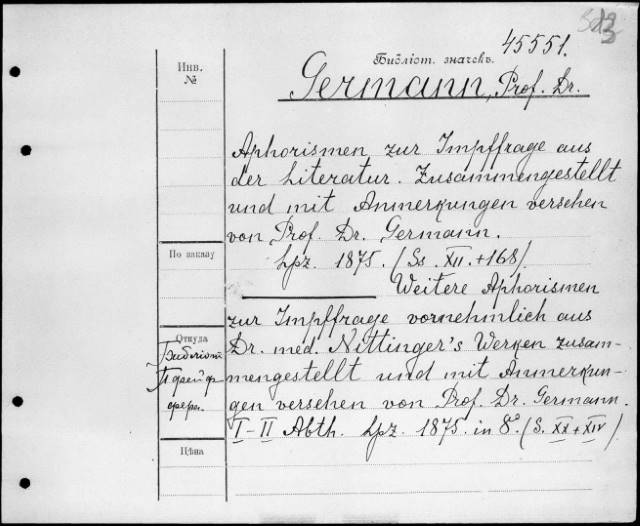 45551.
Библіот. значекъ.
Инв.
№
Germann, Prof. Dr.
Aphorismen zur Impffrage aus
der Literatur. Zusammengestellt
und mit Anmerkungen versehen
von Prof. Dr. Germann.
По заказу
Lpz. 1875. (Ss. XII.+168)
Weitere Aphorismen
zur Impffrage vornehmlich aus
Откуда
Dr. med. Nittinger's Werken zusam-
mengestellt und mit Anmerkun-
gen versehen von Prof. Dr. Germann.
I-II Abth. Lpz. 1875. in 8° (S. XX+XIV)
Цѣна